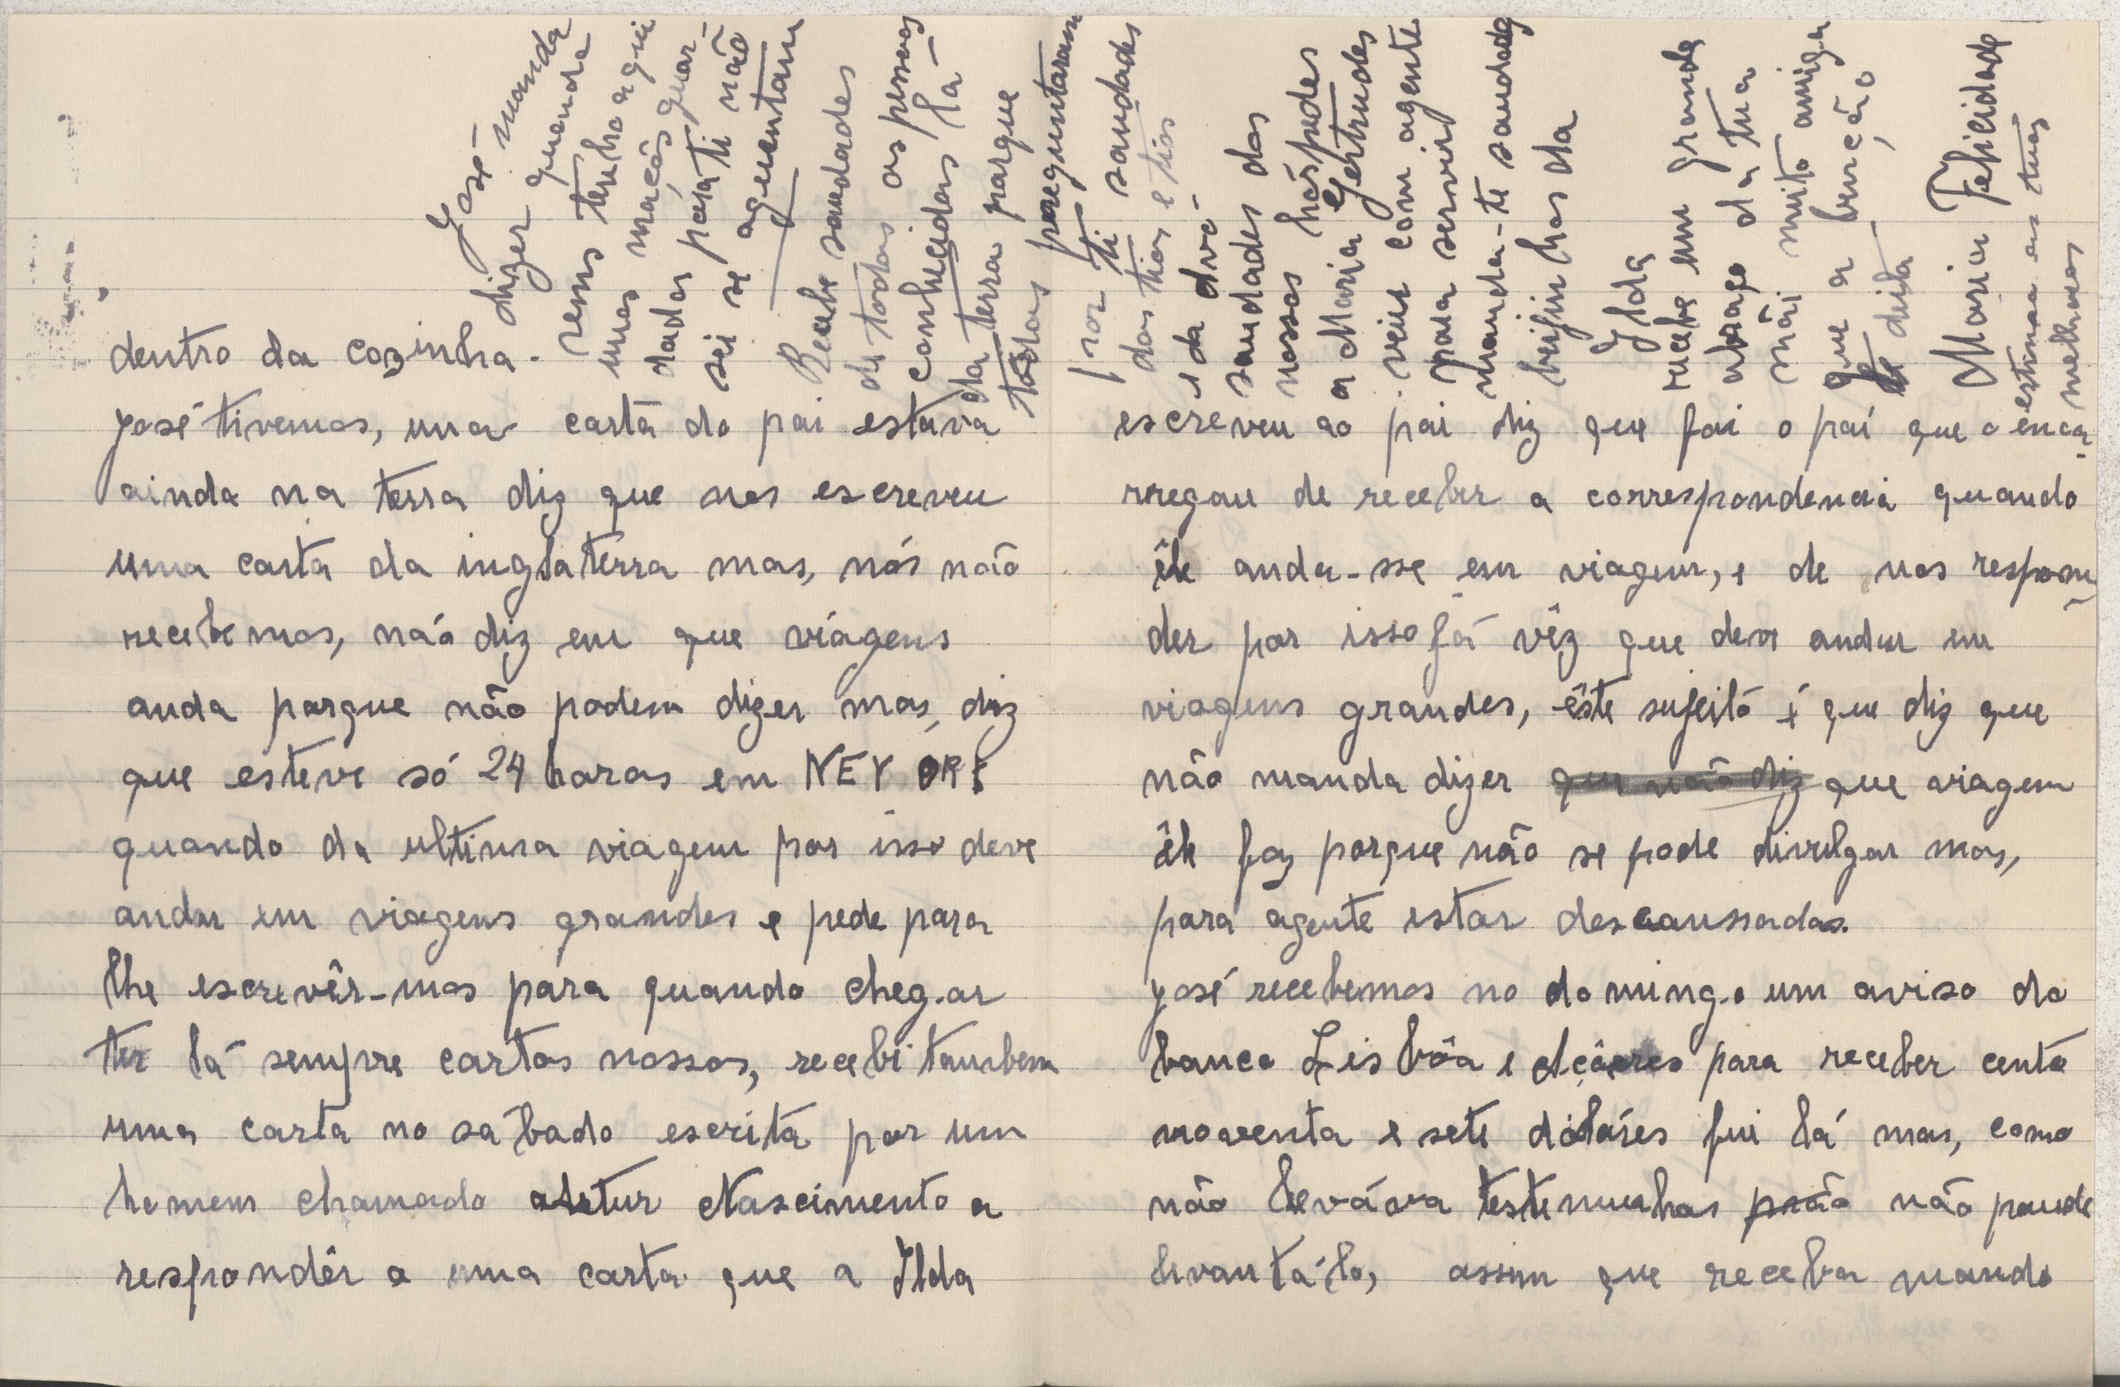 dentro da cozinha.
José tivemos, uma carta do pai estava
ainda na terra diz que nos escreveu
uma carta da inglaterra mas, nós não
recebemos, não diz em que viagens
anda porque não podem dizer mas, diz
que esteve só 24 horas em NEY ORK
quando da ultima viagem por isso deve
andar em viagens grandes e pede para
lhe escrevêr-mos para quando chegar
ter lá sempre cartas nossas, recebi tambem
uma carta no sabado escrita por um
homem chamado Artur Nascimento a
respondêr a uma carta que a Ilda
escreveu ao pai diz que foi o pai que o enca
rregou de receber a correspondencia quando
êle anda-sse em viagem, e de nos respon
der por isso já vêz que deve andar em
viagens grandes, êste sujeito é que diz que
não manda dizer que não diz que viagem
êle faz porque não se pode divulgar mas,
para agente estar descanssadas.
José recebemos no domingo um aviso do
banco Lisbôa e Açôres para receber cento
noventa e sete dólares fui lá mas, como
não levava testemunhas não poude
levantá-lo, assim que receba mando
José manda
dizer quando
vens tenho aqui
umas maçãs guar-
dadas para ti não
sei se aguentam
Recebe saudades
de todas as pessoas
conhecidas lá
da terra porque
todas perguntaram
por ti saudades
das tias e tios
e da avó
saudades dos
nossos hóspedes
a Maria Gertrudes
veiu com agente
para servir
manda-te saudades
beijinhos da
Ilda
recebe um grande
abraço da tua
mãi muito amiga
que a benção
te deita
Maria Felicidade
estima as tuas
melhoras